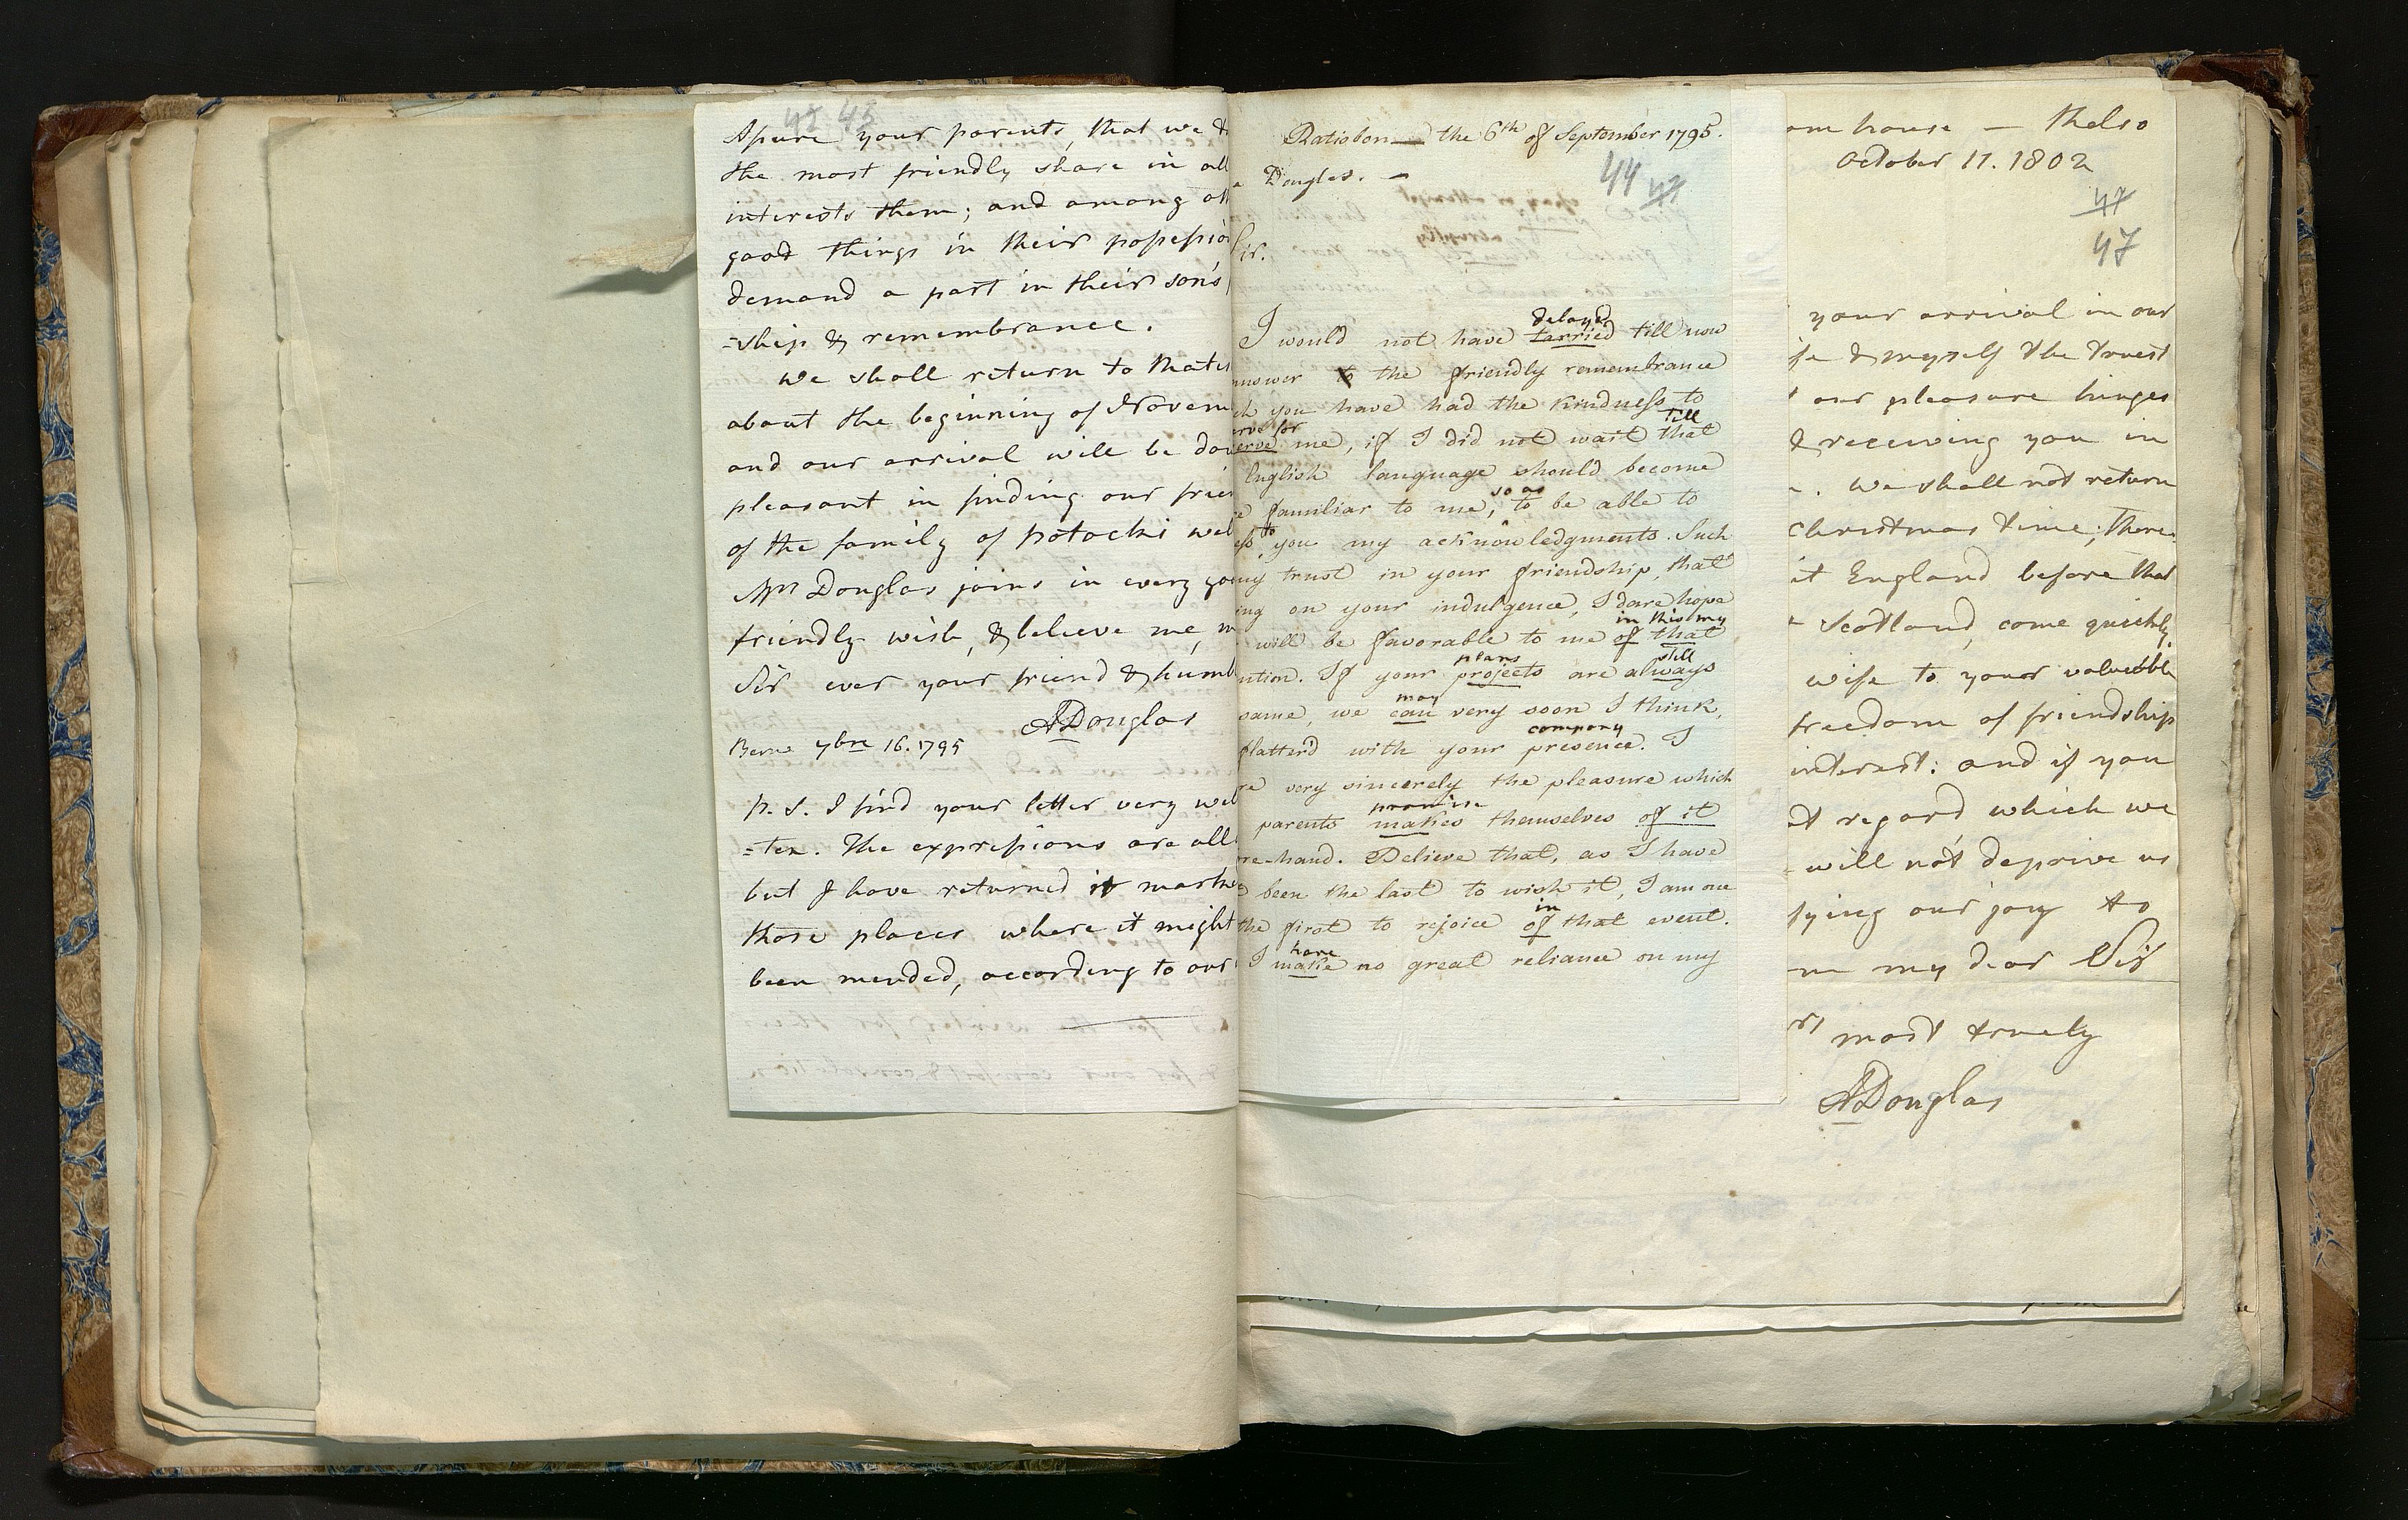 45 43
Assure your parents, that we &
the most friendly share in all
interests them; and among oth
good things in their possessio
demand a part in their son's
=ship & remembrance.
We shall return to Ratis
about the beginning of Novem
and our arrival will be dou
pleasant in finding our frien
of the family of Potocki wel
Mrs Douglas joins in every goo
friendly wish, & believe me, m
Sir ever your friend & humbl
ADouglas
Berne 7bre 16. 1795
P. S. I find your letter very wel
=ten. The expressions are all
but I have returned it marke
those places where it might
been mended, according to our
Ratisbon — the 6th of September 1795.
44 42
Douglas. —
Sir.
delayed
I would not have tarried till now
answer to the friendly remembrance
ch you have had the kindness to
erve for till
erve me, if I did not wait that
English language should become
so as
e familiar to me, to be able to
to
ess, you my acknowledgments. Such
my trust in your friendship, that
ing on your indulgence, I dare hope
in this my
will be favorable to me of that
plans still
ntion. If your projects are always
may
same, we can very soon I think,
company
flatter'd with your presence. I
re very sincerely the pleasure which
promise
parents makes themselves of it
re-hand. Believe that, as I have
been the last to wish it, I am one
in
the first to rejoice of that event.
have
I make no great reliance on my
om house — Kelso
October 11. 1802
47
47
your arrival in our
ife & myself the truest
our pleasure hinges
& receiving you in
. We shall not return
Christmas time; There
it England before that
Scotland, come quickly,
wife to your valuable
freedom of friendship
interest: and if you
at regard which we
will not deprive us
fying our joy to
me my dear Sir
rs most truely
ADouglas